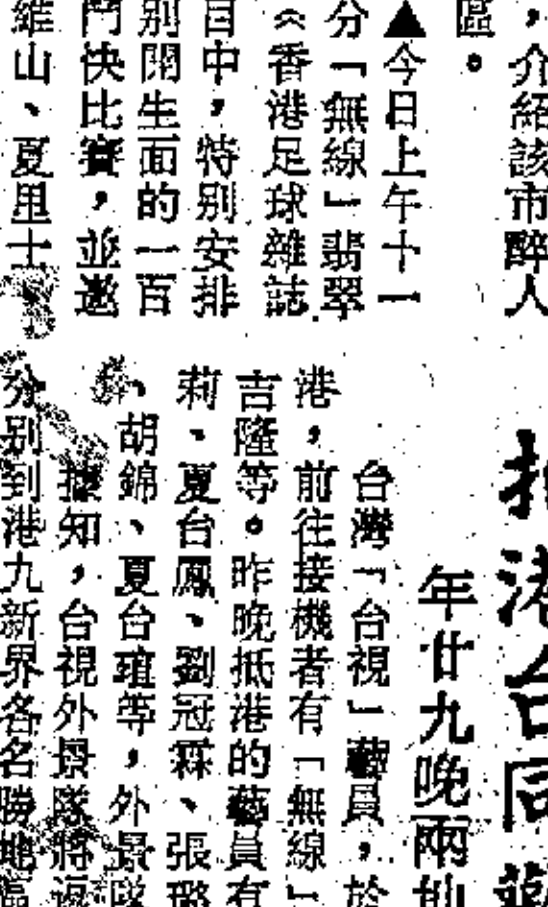 ，介紹該市醉人
區。
▲今日上午十一
分「無線」翡翠
《香港足球雜誌
目中，特别安排
別開生面的一百
鬥快比賽，並邀
維山、夏里士、
港台同
年廿九晚兩
台灣「台視」藝員，於
港，前往接機者有「無線」
吉隆等。昨晚抵港的藝員有
莉、夏台鳳、劉冠霖、張璐
、胡錦、夏台瑄等，外景隊
據知，台視外景隊將返
分别到港九新界各名勝地區